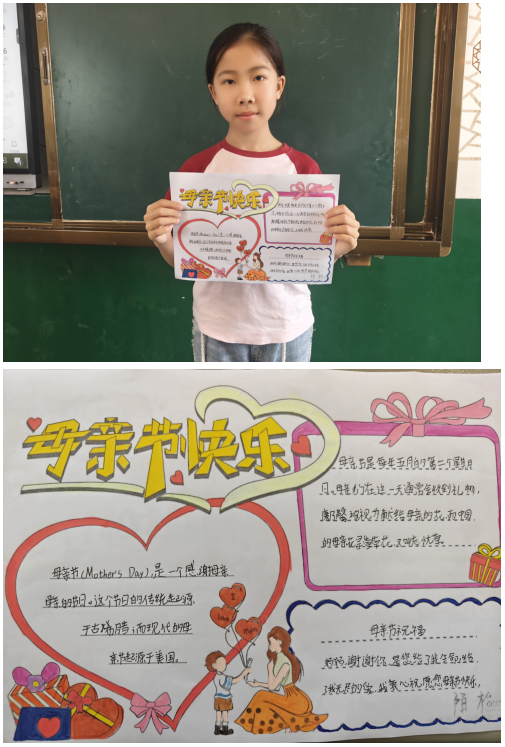 母亲节快乐
母亲节是每年五月的第二个星期
日。母亲们在这一天通常会收到礼物,
康乃馨被视为献给母亲的花,和中国
的母亲花是萱草花,又叫忘忧草。
母亲节(Mother's Day),是一个感谢母亲
母亲的节日。这个节日的传统起源
于古希腊;而现代的母
亲节起源于美国。
I
Love
Mom
母亲节祝福
妈妈,谢谢你,是您给了我生命,给
了我无尽的爱,我衷心祝愿您母亲节快乐。